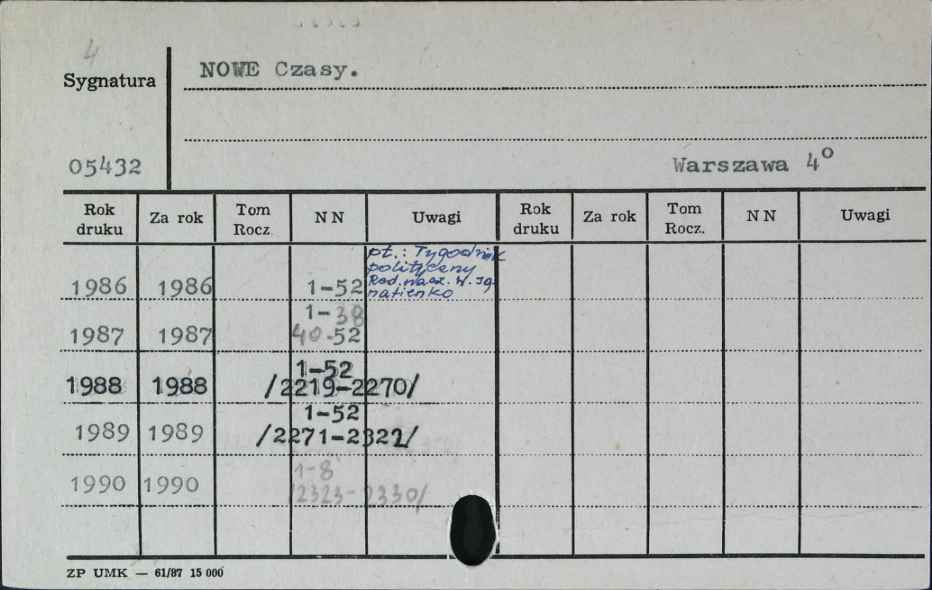 4
Sygnatura
NOWE Czasy.
05432
Warszawa 4°
Rok druku Za rok Tom Rocz. N N Uwagi Rok druku Za rok Tom Rocz. N N Uwagi
pt.: Tygodnik
polityczny
Red. nacz. W. Ig
natienko
1986 1986 1-52
1-38
1987 1987 40-52
1-52
1988 1988 /2219-2270/
1-52
1989 1989 /2271-2322/
1-8
1990 1990 /2323-2330/
ZP UMK — 61/87 15 000